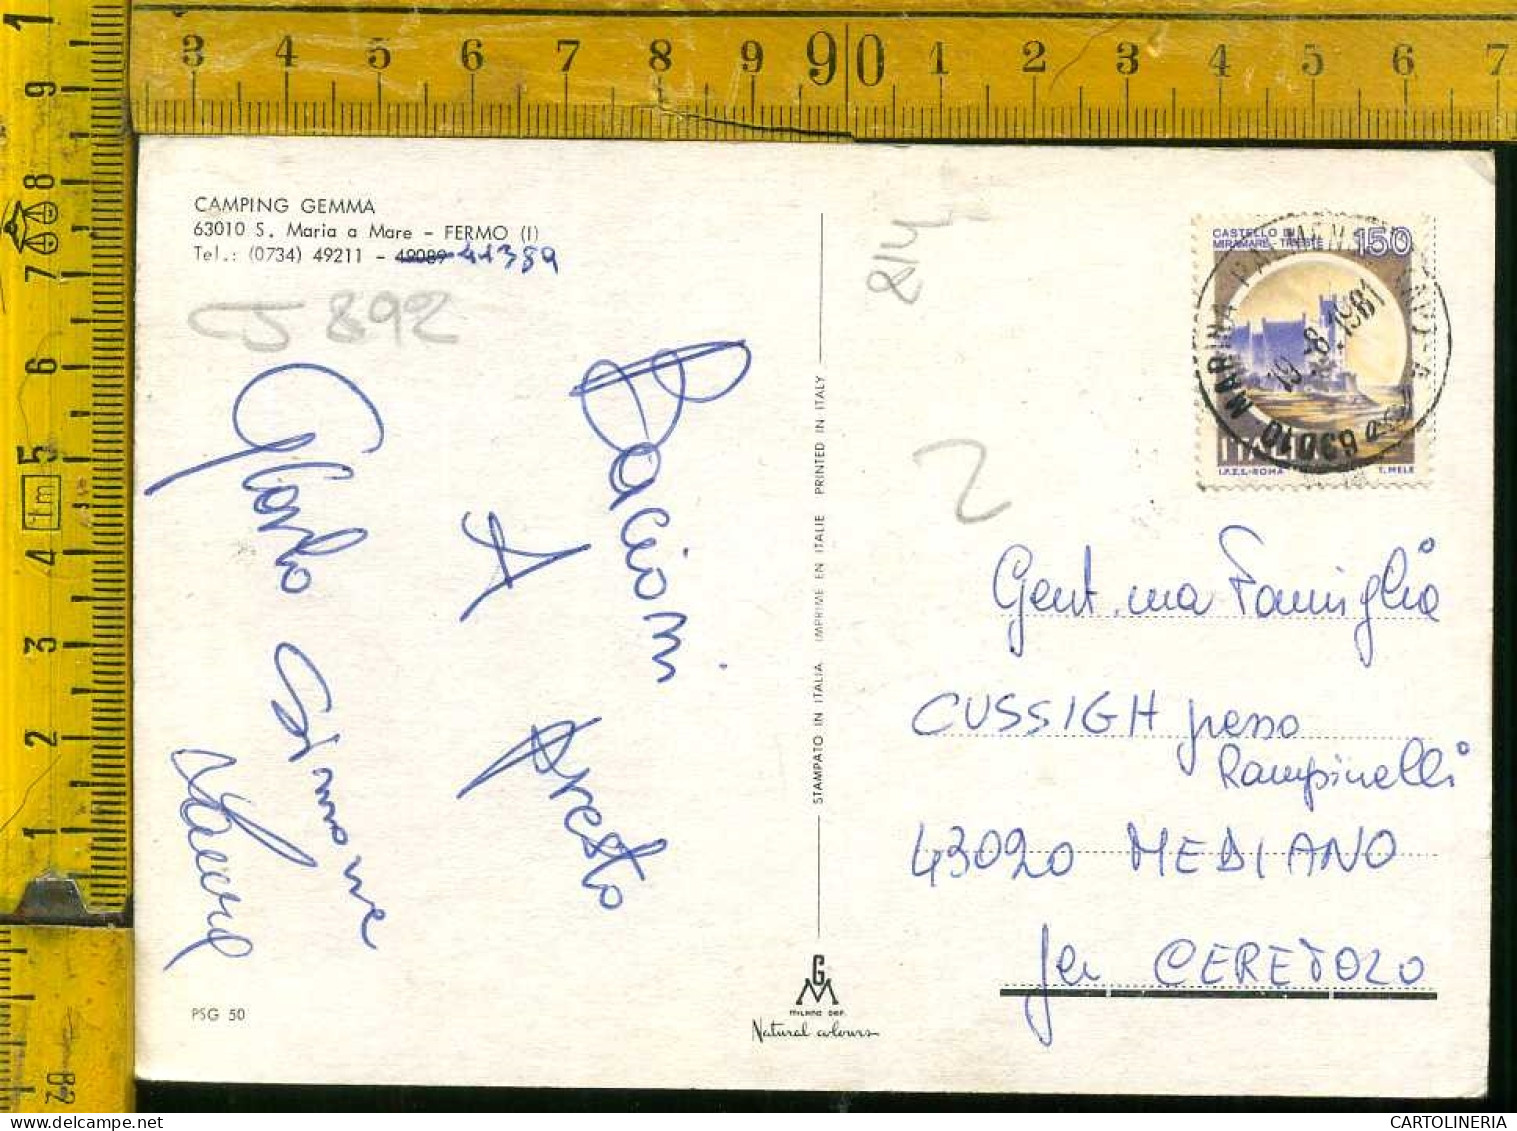 3 4 5 6 7 8 9 90 1 2 3 4 5 6 7
1 9 8 7 6 5 4 3 2 1
1m
CAMPING GEMMA
63010 S. Maria a Mare - FERMO (I)
Tel.: (0734) 49211 - 49089 41389
892
814
2
CASTELLO DI
MIRAMARE - TRIESTE 150
ITALIA
I.P.Z.S.-ROMA T. MELE
63010 MARINA
19.-8.1981
Bacioni
A presto
Simone
Laura
STAMPATO IN ITALIA IMPRIME EN ITALIE PRINTED IN ITALY
Gent.ma Famiglia
CUSSIGH presso
Rampinelli
43020 MEDIANO
per CERETOLO
PSG 50
GM
MILANO DEP.
Natural colours
CARTOLINERIA